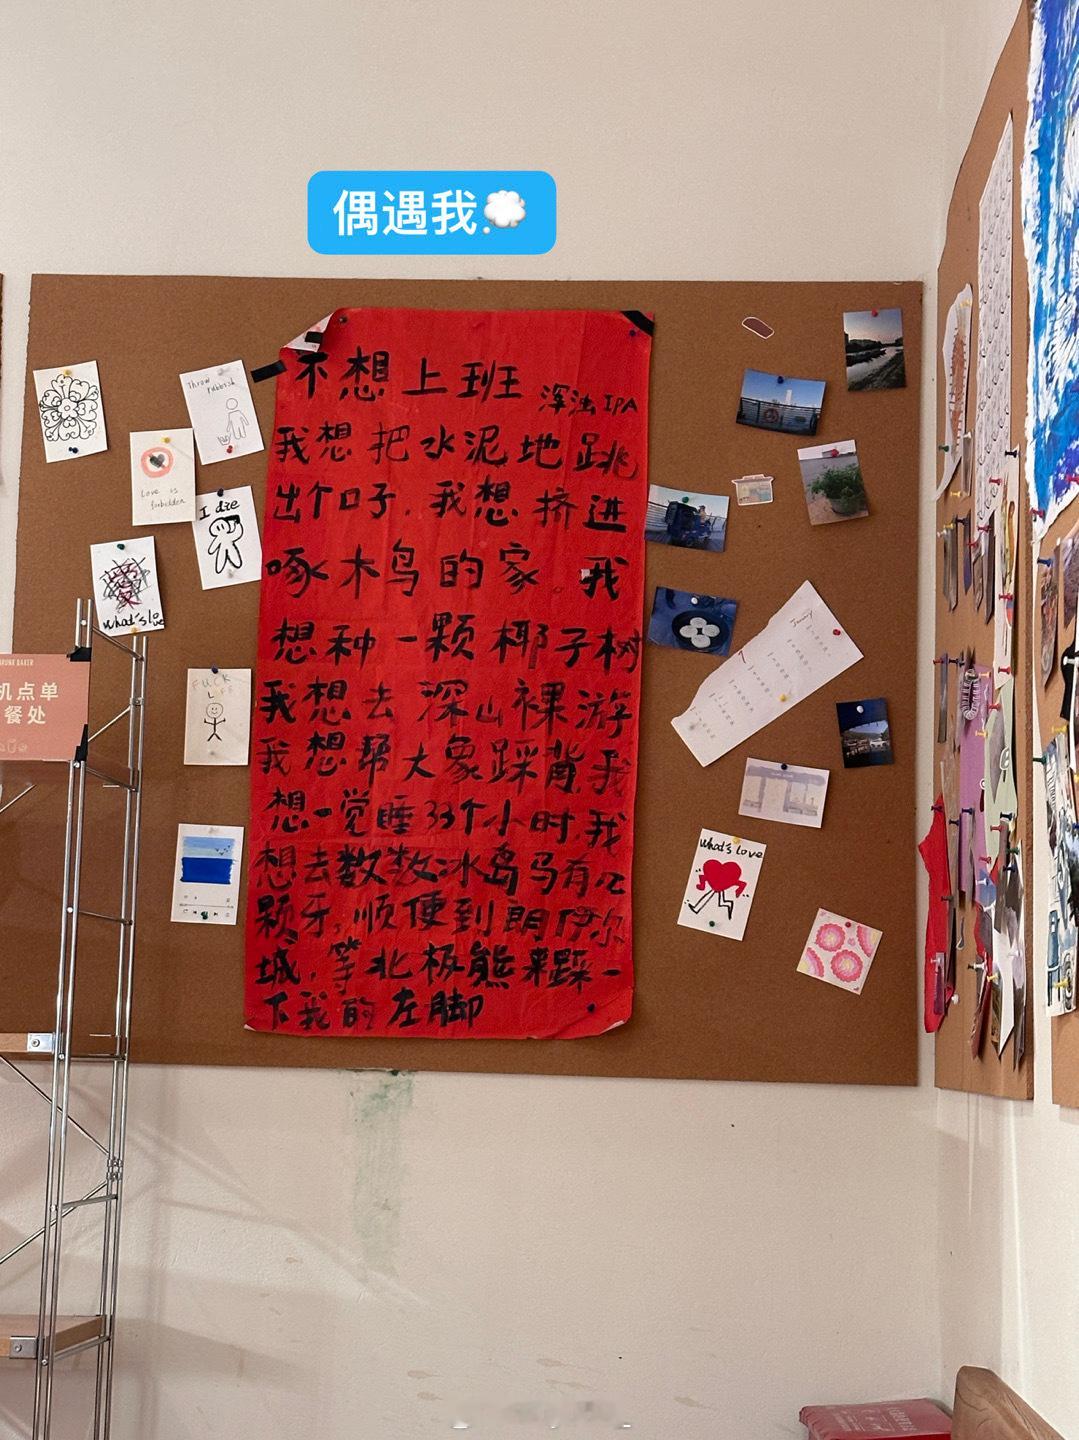 偶遇我
不想上班
浑浊IPA
我想把水泥地跳
出个口子,我想挤进
啄木鸟的家。我
想种一颗椰子树
我想去深山裸游
我想帮大象踩背,我
想一觉睡33个小时,我
想去数数冰岛马有几
颗牙,顺便到朗伊尔
城,等北极熊来踩一
下我的左脚
Throw rubbish
Love is
forbidden
I die
What's love
FUCK
LIFE
What's love
机点单
餐处